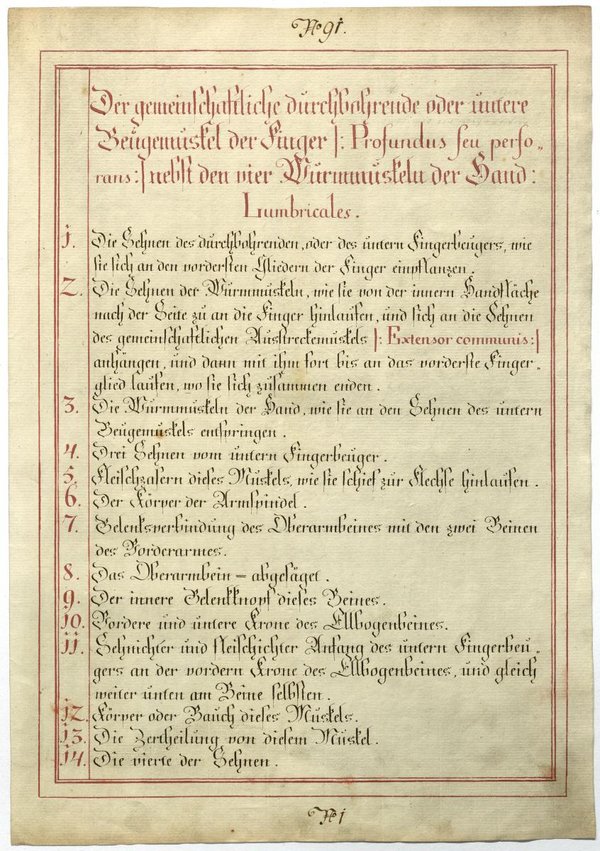 No 91.
Der gemeinschaftliche durchbohrende oder untere
Beugemuskel der Finger |: Profundus seu perfo„
rans :| nebst den vier Wurmmuskeln der Hand:
Lumbricales.
1. Die Sehnen des durchbohrenden, oder des untern Fingerbeugers, wie
sie sich an den vordersten Gliedern der Finger einpflanzen.
2. Die Sehnen der Wurmmuskeln, wie sie von der innern Handfläche
nach der Seite zu an die Finger hinlaufen, und sich an die Sehnen
des gemeinschaftlichen Ausstreckemuskels |: Extensor communis :|
anhängen, und dann mit ihm fort bis an das vorderste Finger„
glied laufen, wo sie sich zusammen enden.
3. Die Wurmmuskeln der Hand, wie sie an den Sehnen des untern
Beugemuskels entspringen.
4. Drei Sehnen vom untern Fingerbeuger.
5. Fleischzasern dieses Muskels, wie sie schief zur Flechse hinlaufen.
6. Der Körper der Armspindel.
7. Gelenksverbindung des Oberarmbeines mit den zwei Beinen
des Vorderarmes.
8. Das Oberarmbein = abgesäget.
9. Der innere Gelenkknopf dieses Beines.
10. Vordere und untere Krone des Ellbogenbeines.
11. Sehnichter und fleischichter Anfang des untern Fingerbeu„
gers an der vordern Krone des Ellbogenbeines, und gleich
weiter unten am Beine selbsten.
12. Körper oder Bauch dieses Muskels.
13. Die Zertheilung von diesem Muskel.
14. Die vierte der Sehnen.
No 1